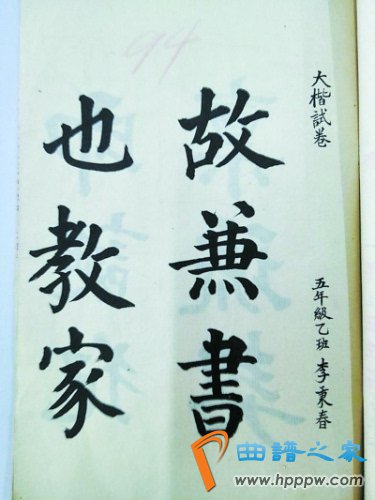 大楷試卷
五年級乙班 李秉春
故兼書
也教家
94
曲谱之家
www.hppw.com